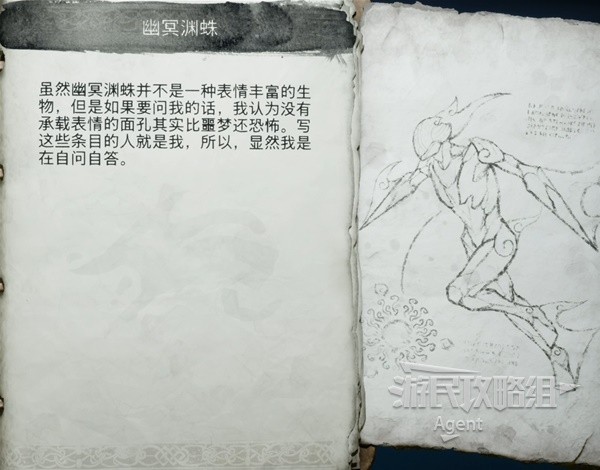 幽冥渊蛛
虽然幽冥渊蛛并不是一种表情丰富的生
物，但是如果要问我的话，我认为没有
承载表情的面孔其实比噩梦还恐怖。写
这些条目的人就是我，所以，显然我是
在自问自答。
游民攻略组
Agent